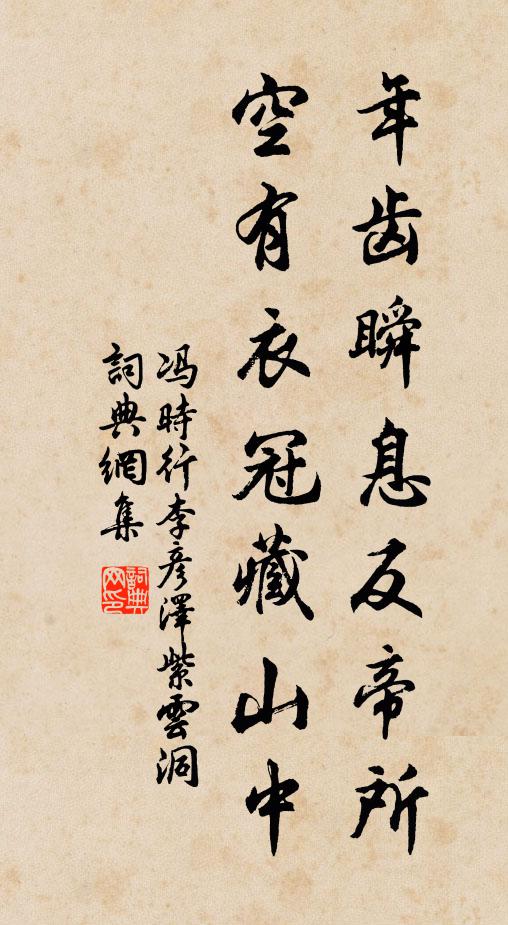 年齿瞬息反帝所
空有衣冠藏山中
冯時行李彦澤紫雲洞
詞典網集
詞典网印